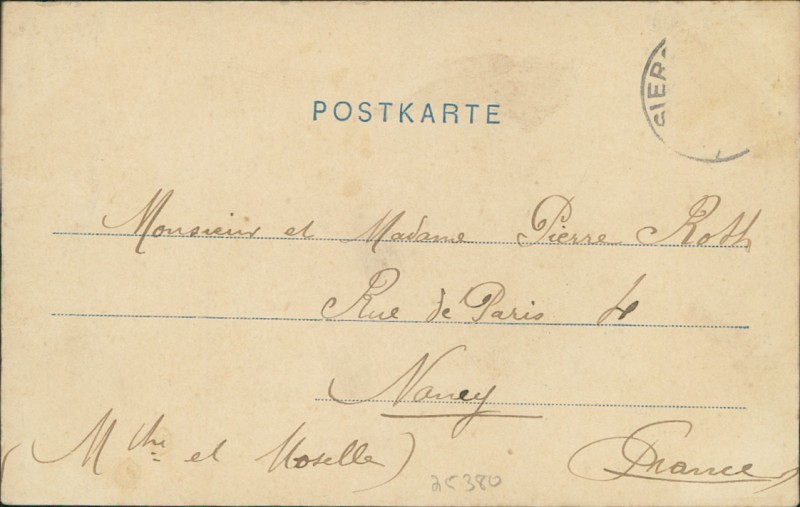 POSTKARTE
SIER
Monsieur et Madame Pierre Roth
Rue de Paris 4
Nancy
(Mthe et Moselle) (France)
25380